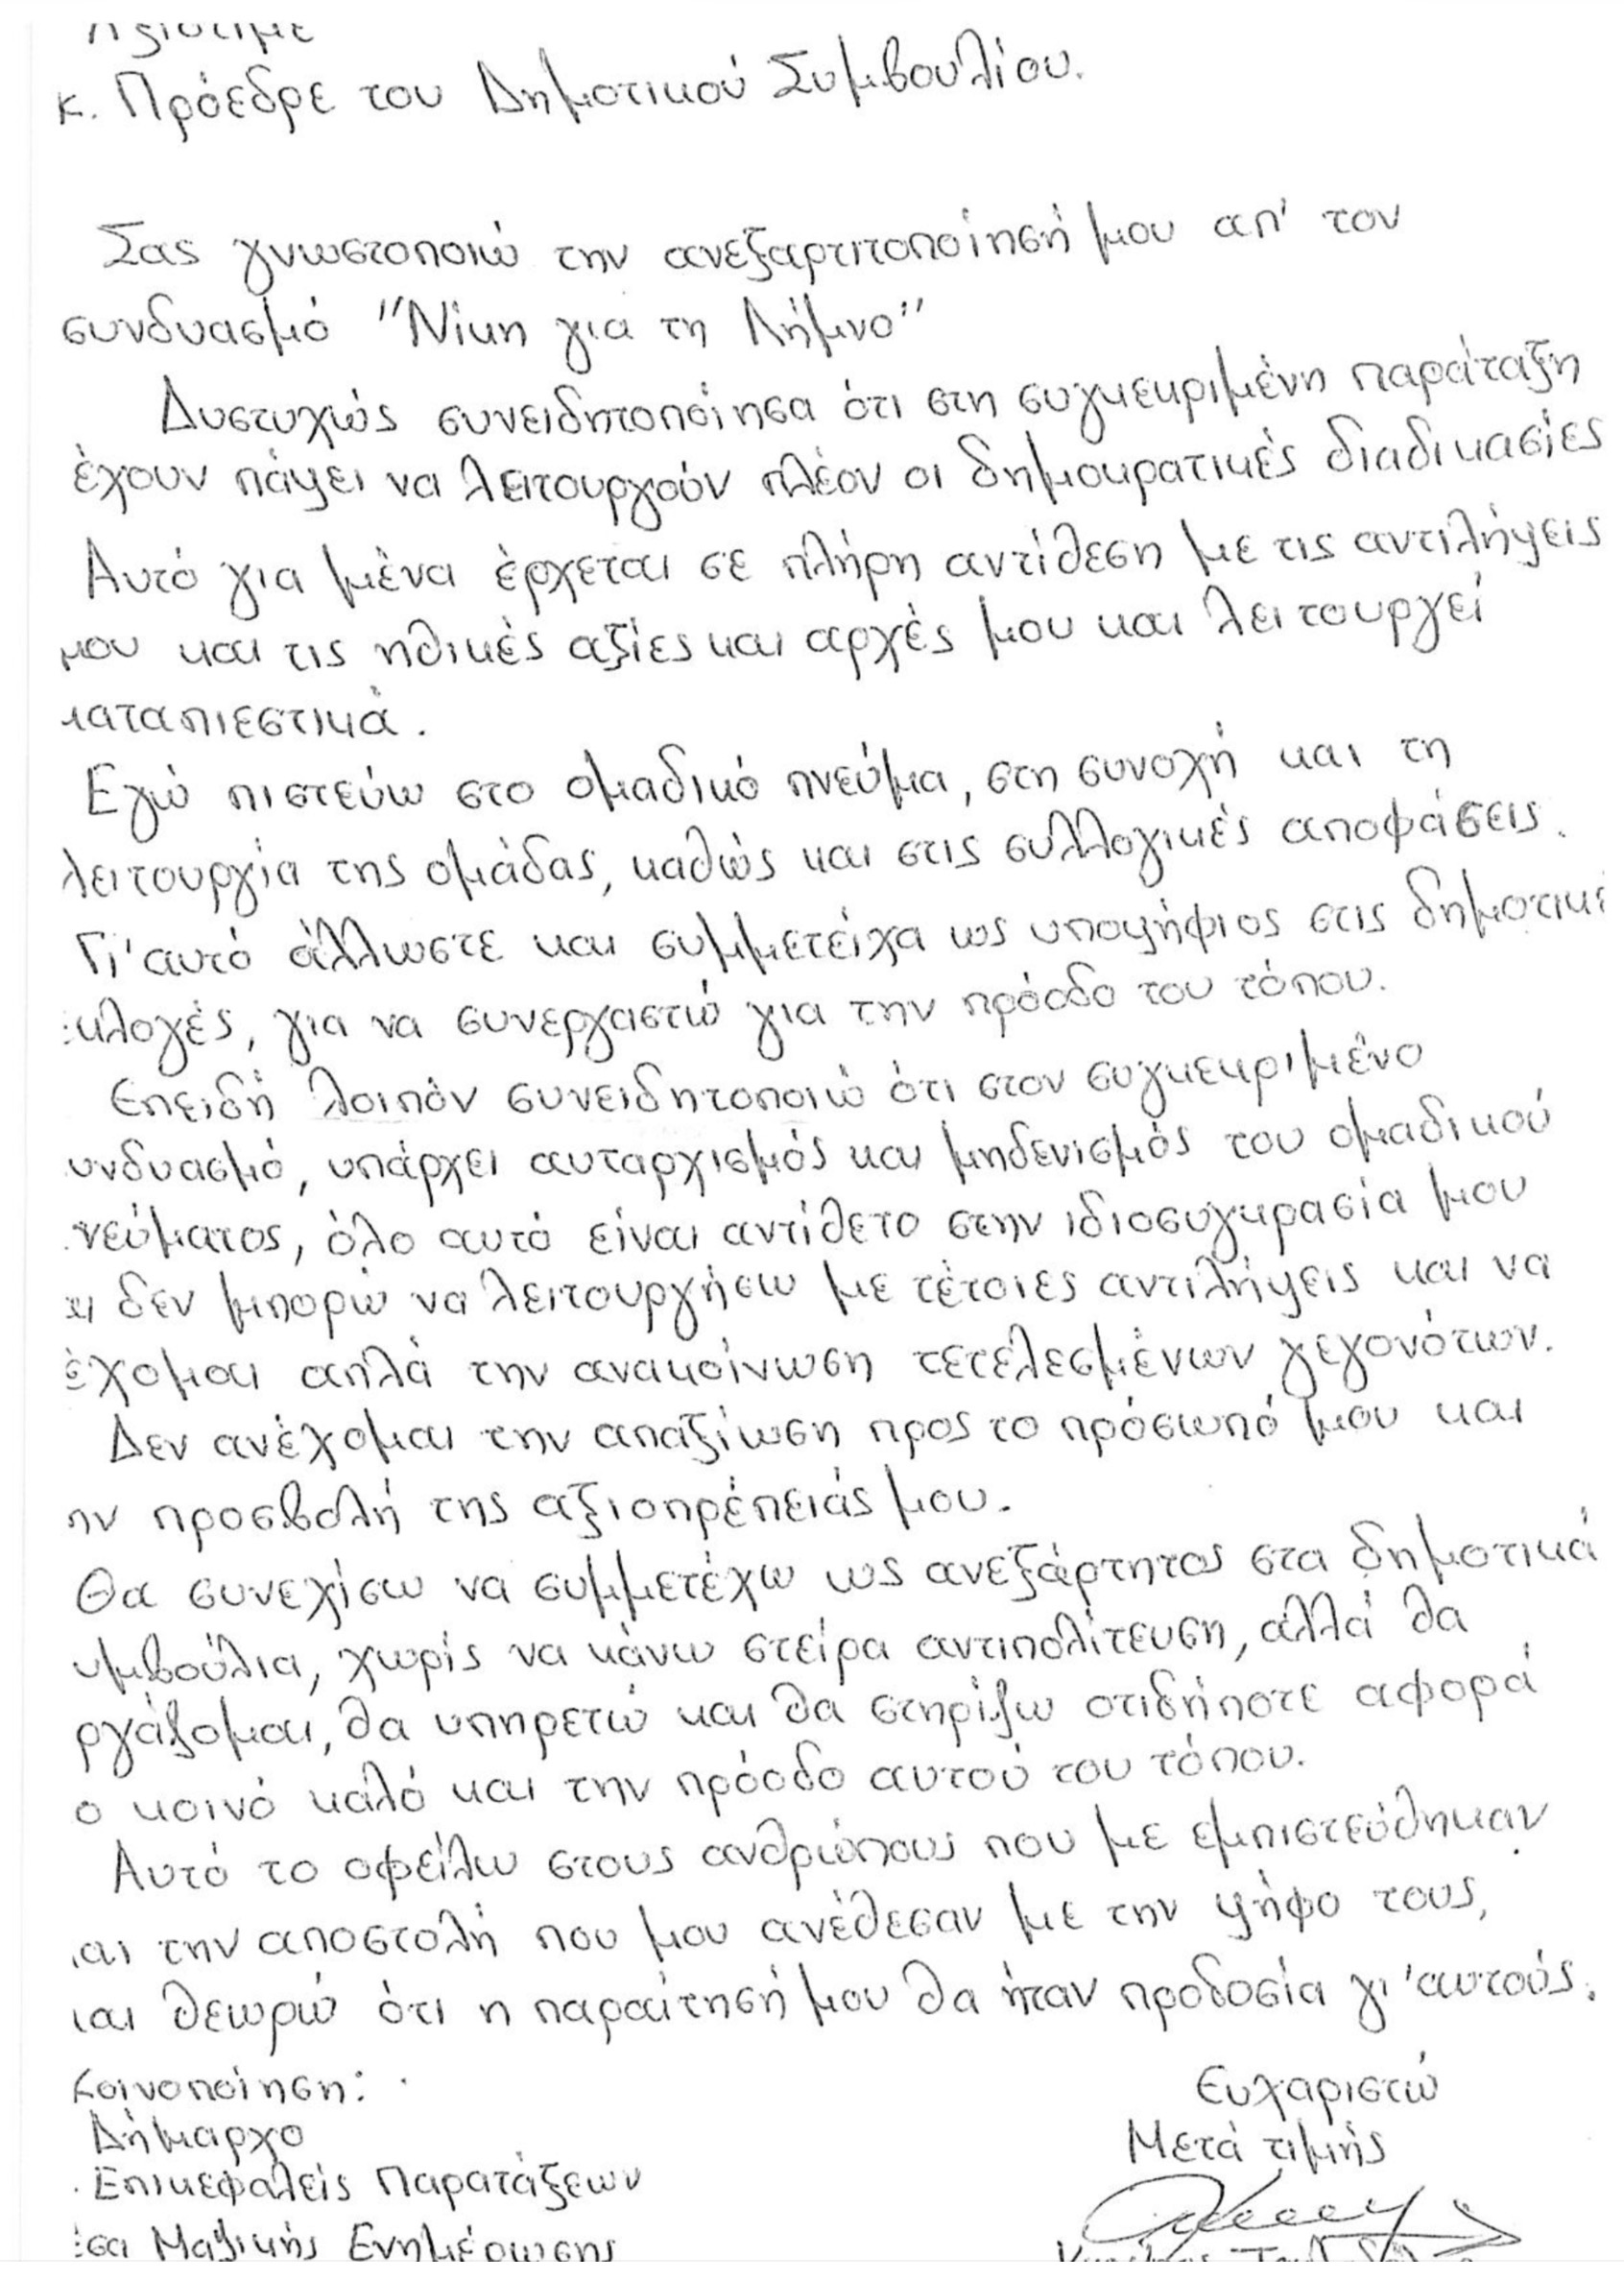 Αξιότιμε
κ. Πρόεδρε του Δημοτικού Συμβουλίου.
Σας γνωστοποιώ την ανεξαρτιτοποίησή μου απ' τον
συνδυασμό "Νίκη για τη Λήμνο"
Δυστυχώς συνειδητοποίησα ότι στη συγκεκριμένη παράταξη
έχουν πάψει να λειτουργούν πλέον οι δημοκρατικές διαδικασίες
Αυτό για μένα έρχεται σε πλήρη αντίθεση με τις αντιλήψεις
μου και τις ηθικές αξίες και αρχές μου και λειτουργεί
καταπιεστικά.
Εγώ πιστεύω στο ομαδικό πνεύμα, στη συνοχή και τη
λειτουργία της ομάδας, καθώς και στις συλλογικές αποφάσεις.
Γι'αυτό άλλωστε και συμμετείχα ως υποψήφιος στις δημοτικέ
εκλογές, για να συνεργαστώ για την πρόοδο του τόπου.
Επειδή λοιπόν συνειδητοποιώ ότι στον συγκεκριμένο
υνδυασμό, υπάρχει αυταρχισμός και μηδενισμός του ομαδικού
νεύματος, όλο αυτό είναι αντίθετο στην ιδιοσυγκρασία μου
αι δεν μπορώ να λειτουργήσω με τέτοιες αντιλήψεις και να
έχομαι απλά την ανακοίνωση τετελεσμένων γεγονότων.
Δεν ανέχομαι την απαξίωση προς το πρόσωπό μου και
ην προσβολή της αξιοπρέπειάς μου.
Θα συνεχίσω να συμμετέχω ως ανεξάρτητος στα δημοτικά
υμβούλια, χωρίς να κάνω στείρα αντιπολίτευση, αλλά θα
ργάζομαι, θα υπηρετώ και θα στηρίζω οτιδήποτε αφορά
ο κοινό καλό και την πρόοδο αυτού του τόπου.
Αυτό το οφείλω στους ανθρώπους που με εμπιστεύθηκαν
αι την αποστολή που μου ανέθεσαν με την ψήφο τους,
και θεωρώ ότι η παραίτησή μου θα ήταν προδοσία γι'αυτούς.
Κοινοποίηση:
Δήμαρχο
Επικεφαλείς Παρατάξεων
έσα Μαζικής Ενημέρωσης
Ευχαριστώ
Μετά τιμής